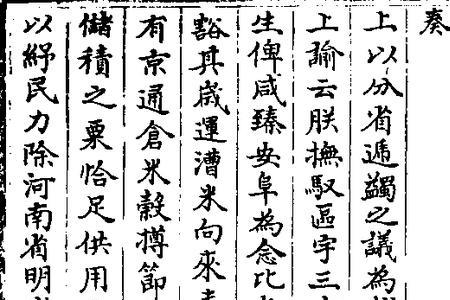 奏
上以分省遞蠲之議為
上諭云朕撫馭區宇三
生俾咸臻安阜為念比
豁其歲運漕米向來
有京通倉米穀撙節
儲積之粟恰足供用
以紓民力除河南省明